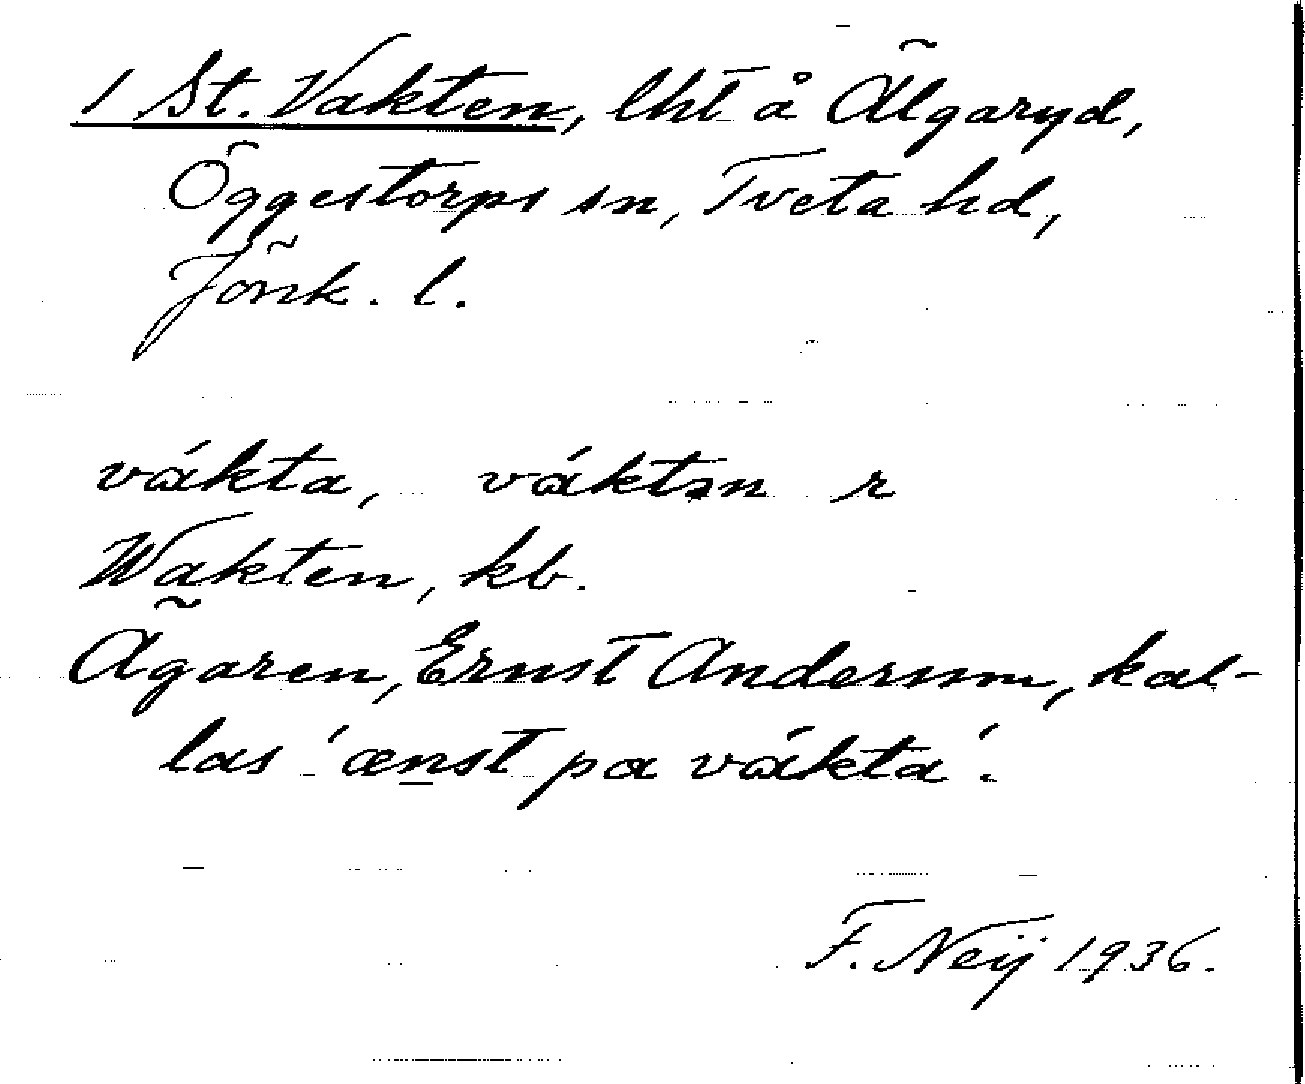 1 St. Vakten, lht å Älgaryd,
Öggestorps sn, Tveta hd,
Jönk. l.
vákta, váktən r
Wakten, kb.
Ägaren, Ernst Andersson, kal-
las 'ænst pa vákta'.
F. Neij 1936.